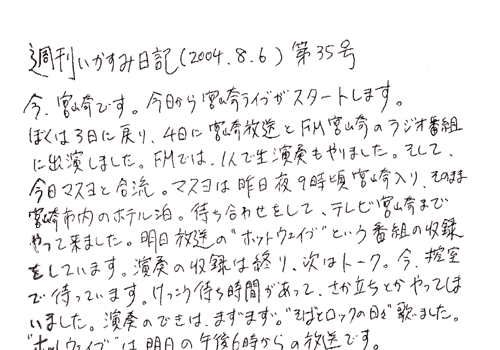 週刊いかすみ日記(2004.8.6) 第35号
今、宮崎です。今日から宮崎ライブがスタートします。
ぼくは3日に戻り、4日に宮崎放送とFM宮崎のラジオ番組
に出演しました。FMでは、1人で生演奏もやりました。そして、
今日マスヨと合流。マスヨは昨日夜9時頃宮崎入り、そのまま
宮崎市内のホテル泊。待ち合わせをして、テレビ宮崎まで
やって来ました。明日放送の"ホットウェイブ"という番組の収録
をしています。演奏の収録は終り、次はトーク。今、控室
で待っています。けっこう待ち時間があって、さか立ちとかやってしま
いました。演奏のできは、まずまず。"そばとロックの日々"歌いました。
"ホットウェイブ"は明日の午後6時からの放送です。